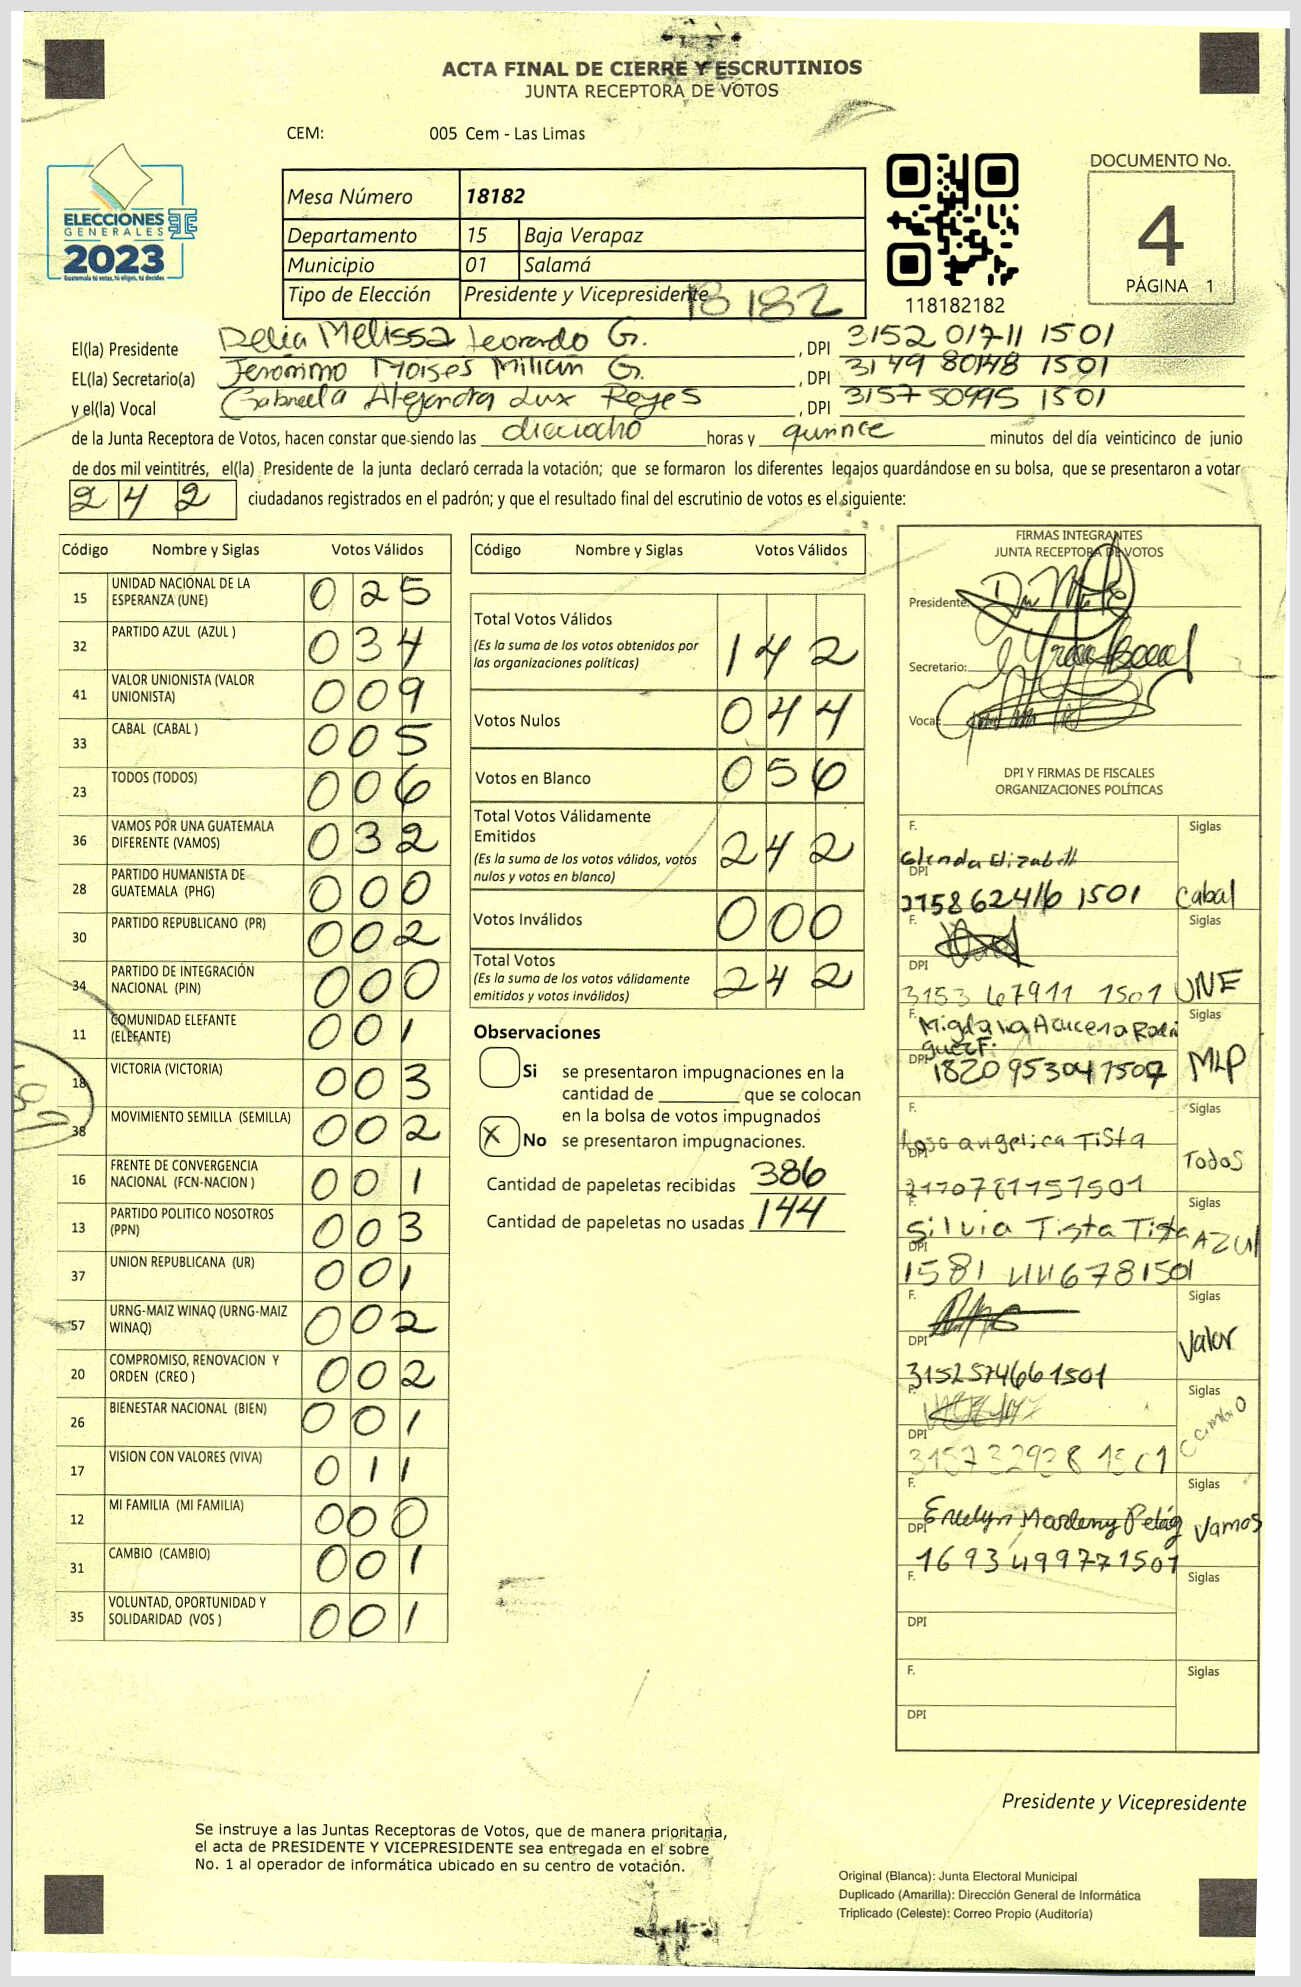 ACTA FINAL DE CIERRE Y ESCRUTINIOS
JUNTA RECEPTORA DE VOTOS
CEM: 005 Cem - Las Limas
ELECCIONES
GENERALES
2023
Guatemala tú votas, tú eliges, tú decides
Mesa Número 18182
Departamento 15 Baja Verapaz
Municipio 01 Salamá
Tipo de Elección Presidente y Vicepresidente
18182
118182182
DOCUMENTO No.
4
PÁGINA 1
El(la) Presidente Delia Melissa Leorardo G. , DPI 3152 01711 1501
EL(la) Secretario(a) Jerónimo Moises Milian G. , DPI 3149 80148 1501
y el(la) Vocal Gabriela Alejandra Lux Reyes , DPI 3157 50995 1501
de la Junta Receptora de Votos, hacen constar que siendo las dieciocho horas y quince minutos del día veinticinco de junio
de dos mil veintitrés, el(la) Presidente de la junta declaró cerrada la votación; que se formaron los diferentes legajos guardándose en su bolsa, que se presentaron a votar
242 ciudadanos registrados en el padrón; y que el resultado final del escrutinio de votos es el siguiente:
Código Nombre y Siglas Votos Válidos
15 UNIDAD NACIONAL DE LA ESPERANZA (UNE) 025
32 PARTIDO AZUL (AZUL ) 034
41 VALOR UNIONISTA (VALOR UNIONISTA) 009
33 CABAL (CABAL ) 005
23 TODOS (TODOS) 006
36 VAMOS POR UNA GUATEMALA DIFERENTE (VAMOS) 032
28 PARTIDO HUMANISTA DE GUATEMALA (PHG) 000
30 PARTIDO REPUBLICANO (PR) 002
34 PARTIDO DE INTEGRACIÓN NACIONAL (PIN) 000
11 COMUNIDAD ELEFANTE (ELEFANTE) 001
18 VICTORIA (VICTORIA) 003
38 MOVIMIENTO SEMILLA (SEMILLA) 002
16 FRENTE DE CONVERGENCIA NACIONAL (FCN-NACION ) 001
13 PARTIDO POLITICO NOSOTROS (PPN) 003
37 UNION REPUBLICANA (UR) 001
57 URNG-MAIZ WINAQ (URNG-MAIZ WINAQ) 002
20 COMPROMISO, RENOVACION Y ORDEN (CREO ) 002
26 BIENESTAR NACIONAL (BIEN) 001
17 VISION CON VALORES (VIVA) 011
12 MI FAMILIA (MI FAMILIA) 000
31 CAMBIO (CAMBIO) 001
35 VOLUNTAD, OPORTUNIDAD Y SOLIDARIDAD (VOS ) 001
Código Nombre y Siglas Votos Válidos
Total Votos Válidos
(Es la suma de los votos obtenidos por las organizaciones políticas) 142
Votos Nulos 044
Votos en Blanco 056
Total Votos Válidamente Emitidos
(Es la suma de los votos válidos, votos nulos y votos en blanco) 242
Votos Inválidos 000
Total Votos
(Es la suma de los votos válidamente emitidos y votos inválidos) 242
Observaciones
Si se presentaron impugnaciones en la
cantidad de ________ que se colocan
en la bolsa de votos impugnados
X No se presentaron impugnaciones.
Cantidad de papeletas recibidas 386
Cantidad de papeletas no usadas 144
FIRMAS INTEGRANTES
JUNTA RECEPTORA DE VOTOS
Presidente:
Secretario:
Vocal:
DPI Y FIRMAS DE FISCALES
ORGANIZACIONES POLÍTICAS
F. Glenda Elizabeth Siglas
DPI 2758 62416 1501 Cabal
F. Siglas
DPI 3153 67911 1501 UNE
F. Migdalia Azucena Siglas
DPI 1820 95304 1507 MLP
F. angelica Tista Siglas
DPI Todos
F. Silvia Tista Tista Siglas
DPI 1581 44678 1501 AZUL
F. Siglas
DPI 3152574661501 Valor
F. Siglas
DPI
F. Evelyn Siglas
DPI 1693499771501 Vamos
F. Siglas
DPI
F. Siglas
DPI
Presidente y Vicepresidente
Se instruye a las Juntas Receptoras de Votos, que de manera prioritaria,
el acta de PRESIDENTE Y VICEPRESIDENTE sea entregada en el sobre
No. 1 al operador de informática ubicado en su centro de votación.
Original (Blanca): Junta Electoral Municipal
Duplicado (Amarilla): Dirección General de Informática
Triplicado (Celeste): Correo Propio (Auditoría)